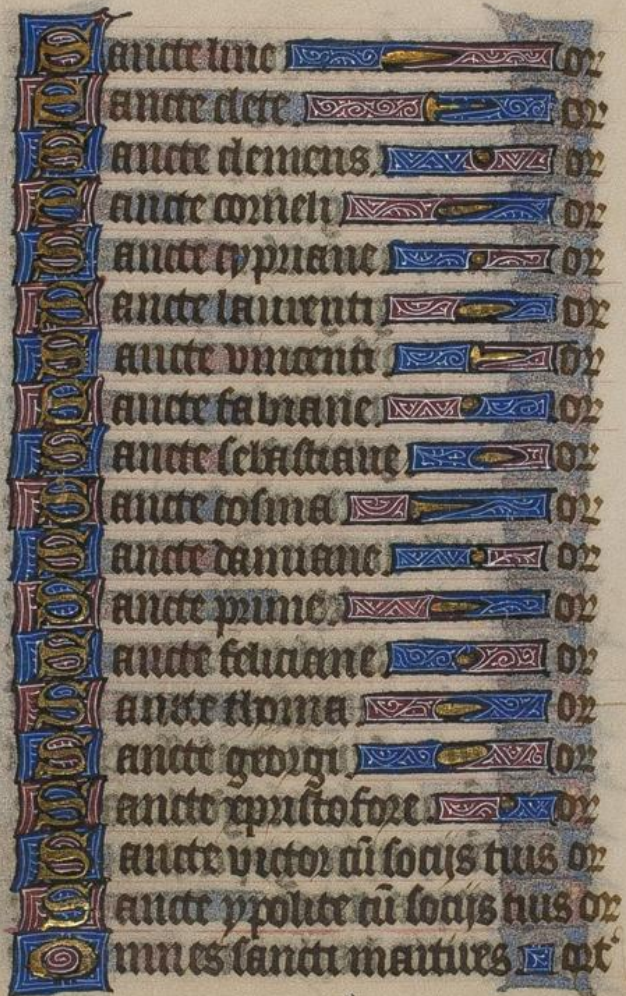 Sancte line or
Sancte clete or
Sancte clemens or
Sancte corneli or
Sancte cypriane or
Sancte laurenti or
Sancte vincenti or
Sancte fabiane or
Sancte sebastiane or
Sancte cosma or
Sancte damiane or
Sancte prime or
Sancte feliciane or
Sancte thoma or
Sancte georgi or
Sancte xpristofore or
Sancte victor cū socijs tuis or
Sancte ypolite cū socijs tuis or
Omnes sancti martires